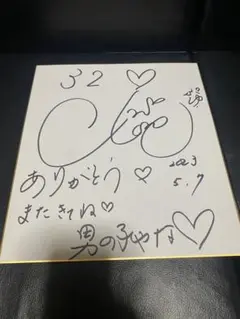 32♡
2023
5.7
ありがとう♡
またきてね♡
男の子やな♡